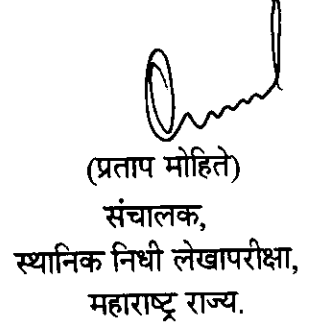 (प्रताप मोहिते)
संचालक,
स्थानिक निधी लेखापरीक्षा,
महाराष्ट्र राज्य.